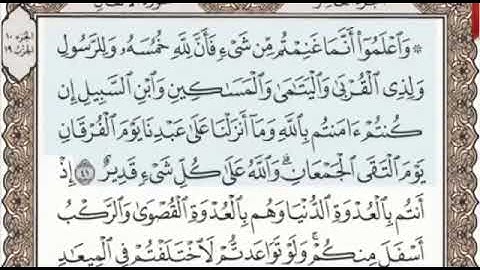 ۞ وَٱعْلَمُوٓا۟ أَنَّمَا غَنِمْتُم مِّن شَىْءٍ فَأَنَّ لِلَّهِ خُمُسَهُۥ وَلِلرَّسُولِ
وَلِذِى ٱلْقُرْبَىٰ وَٱلْيَتَٰمَىٰ وَٱلْمَسَٰكِينِ وَٱبْنِ ٱلسَّبِيلِ إِن
كُنتُمْ ءَامَنتُم بِٱللَّهِ وَمَآ أَنزَلْنَا عَلَىٰ عَبْدِنَا يَوْمَ ٱلْفُرْقَانِ
يَوْمَ ٱلْتَقَى ٱلْجَمْعَانِ ۗ وَٱللَّهُ عَلَىٰ كُلِّ شَىْءٍ قَدِيرٌ ٤١ إِذْ
أَنتُم بِٱلْعُدْوَةِ ٱلدُّنْيَا وَهُم بِٱلْعُدْوَةِ ٱلْقُصْوَىٰ وَٱلرَّكْبُ
أَسْفَلَ مِنكُمْ ۚ وَلَوْ تَوَاعَدتُّمْ لَٱخْتَلَفْتُمْ فِى ٱلْمِيعَٰدِ